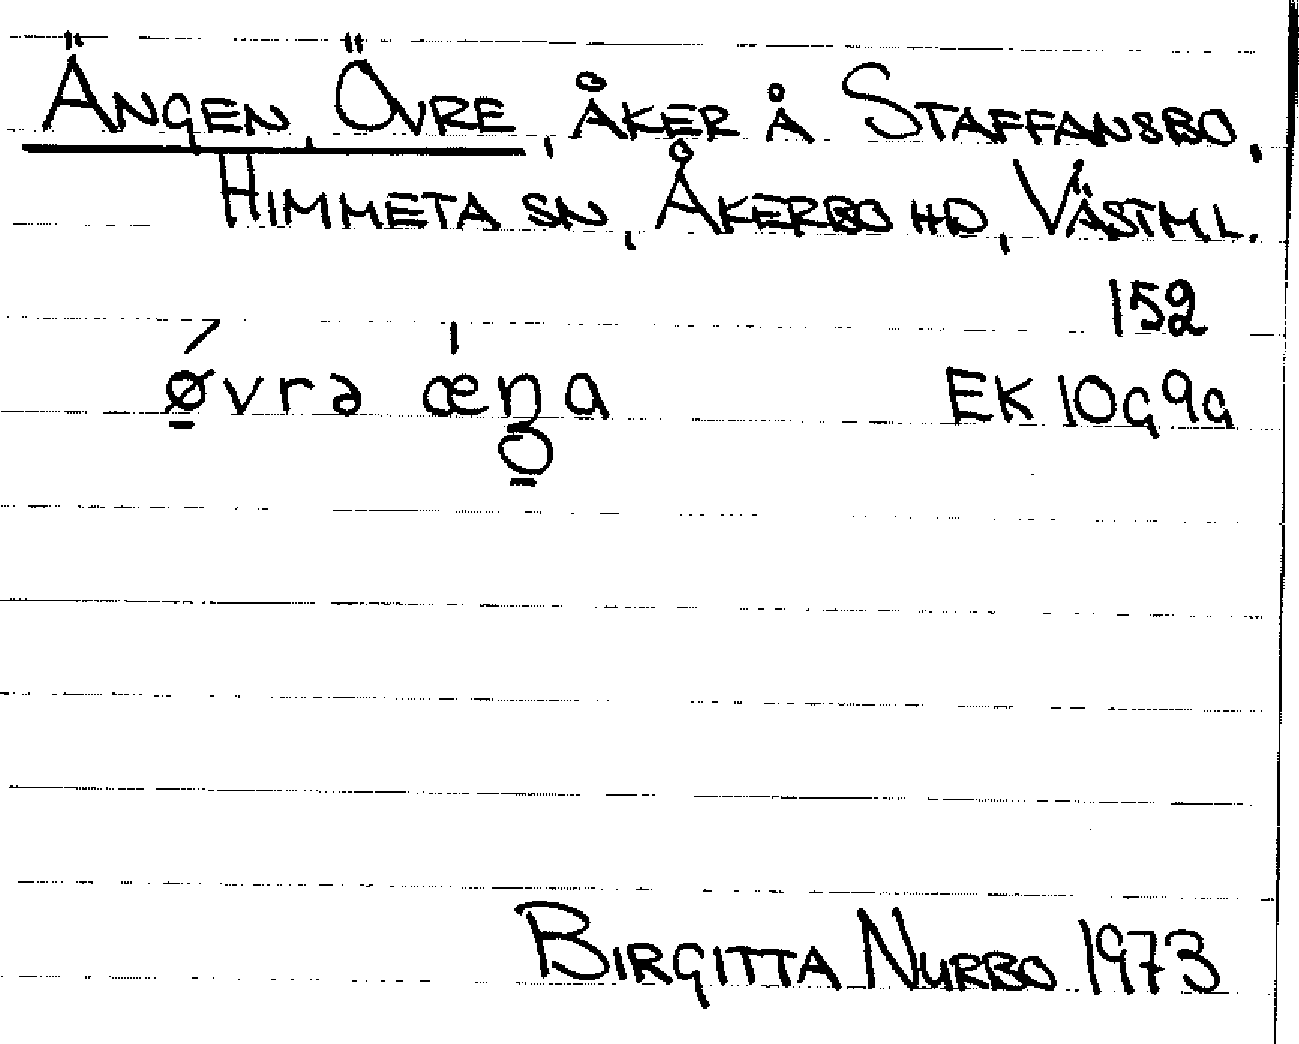 Ängen, Övre, åker å Staffansbo,
Himmeta sn, Åkerbo hd, Västml.
152
øvrə æŋa
EK 10g9a
Birgitta Nurbo 1973